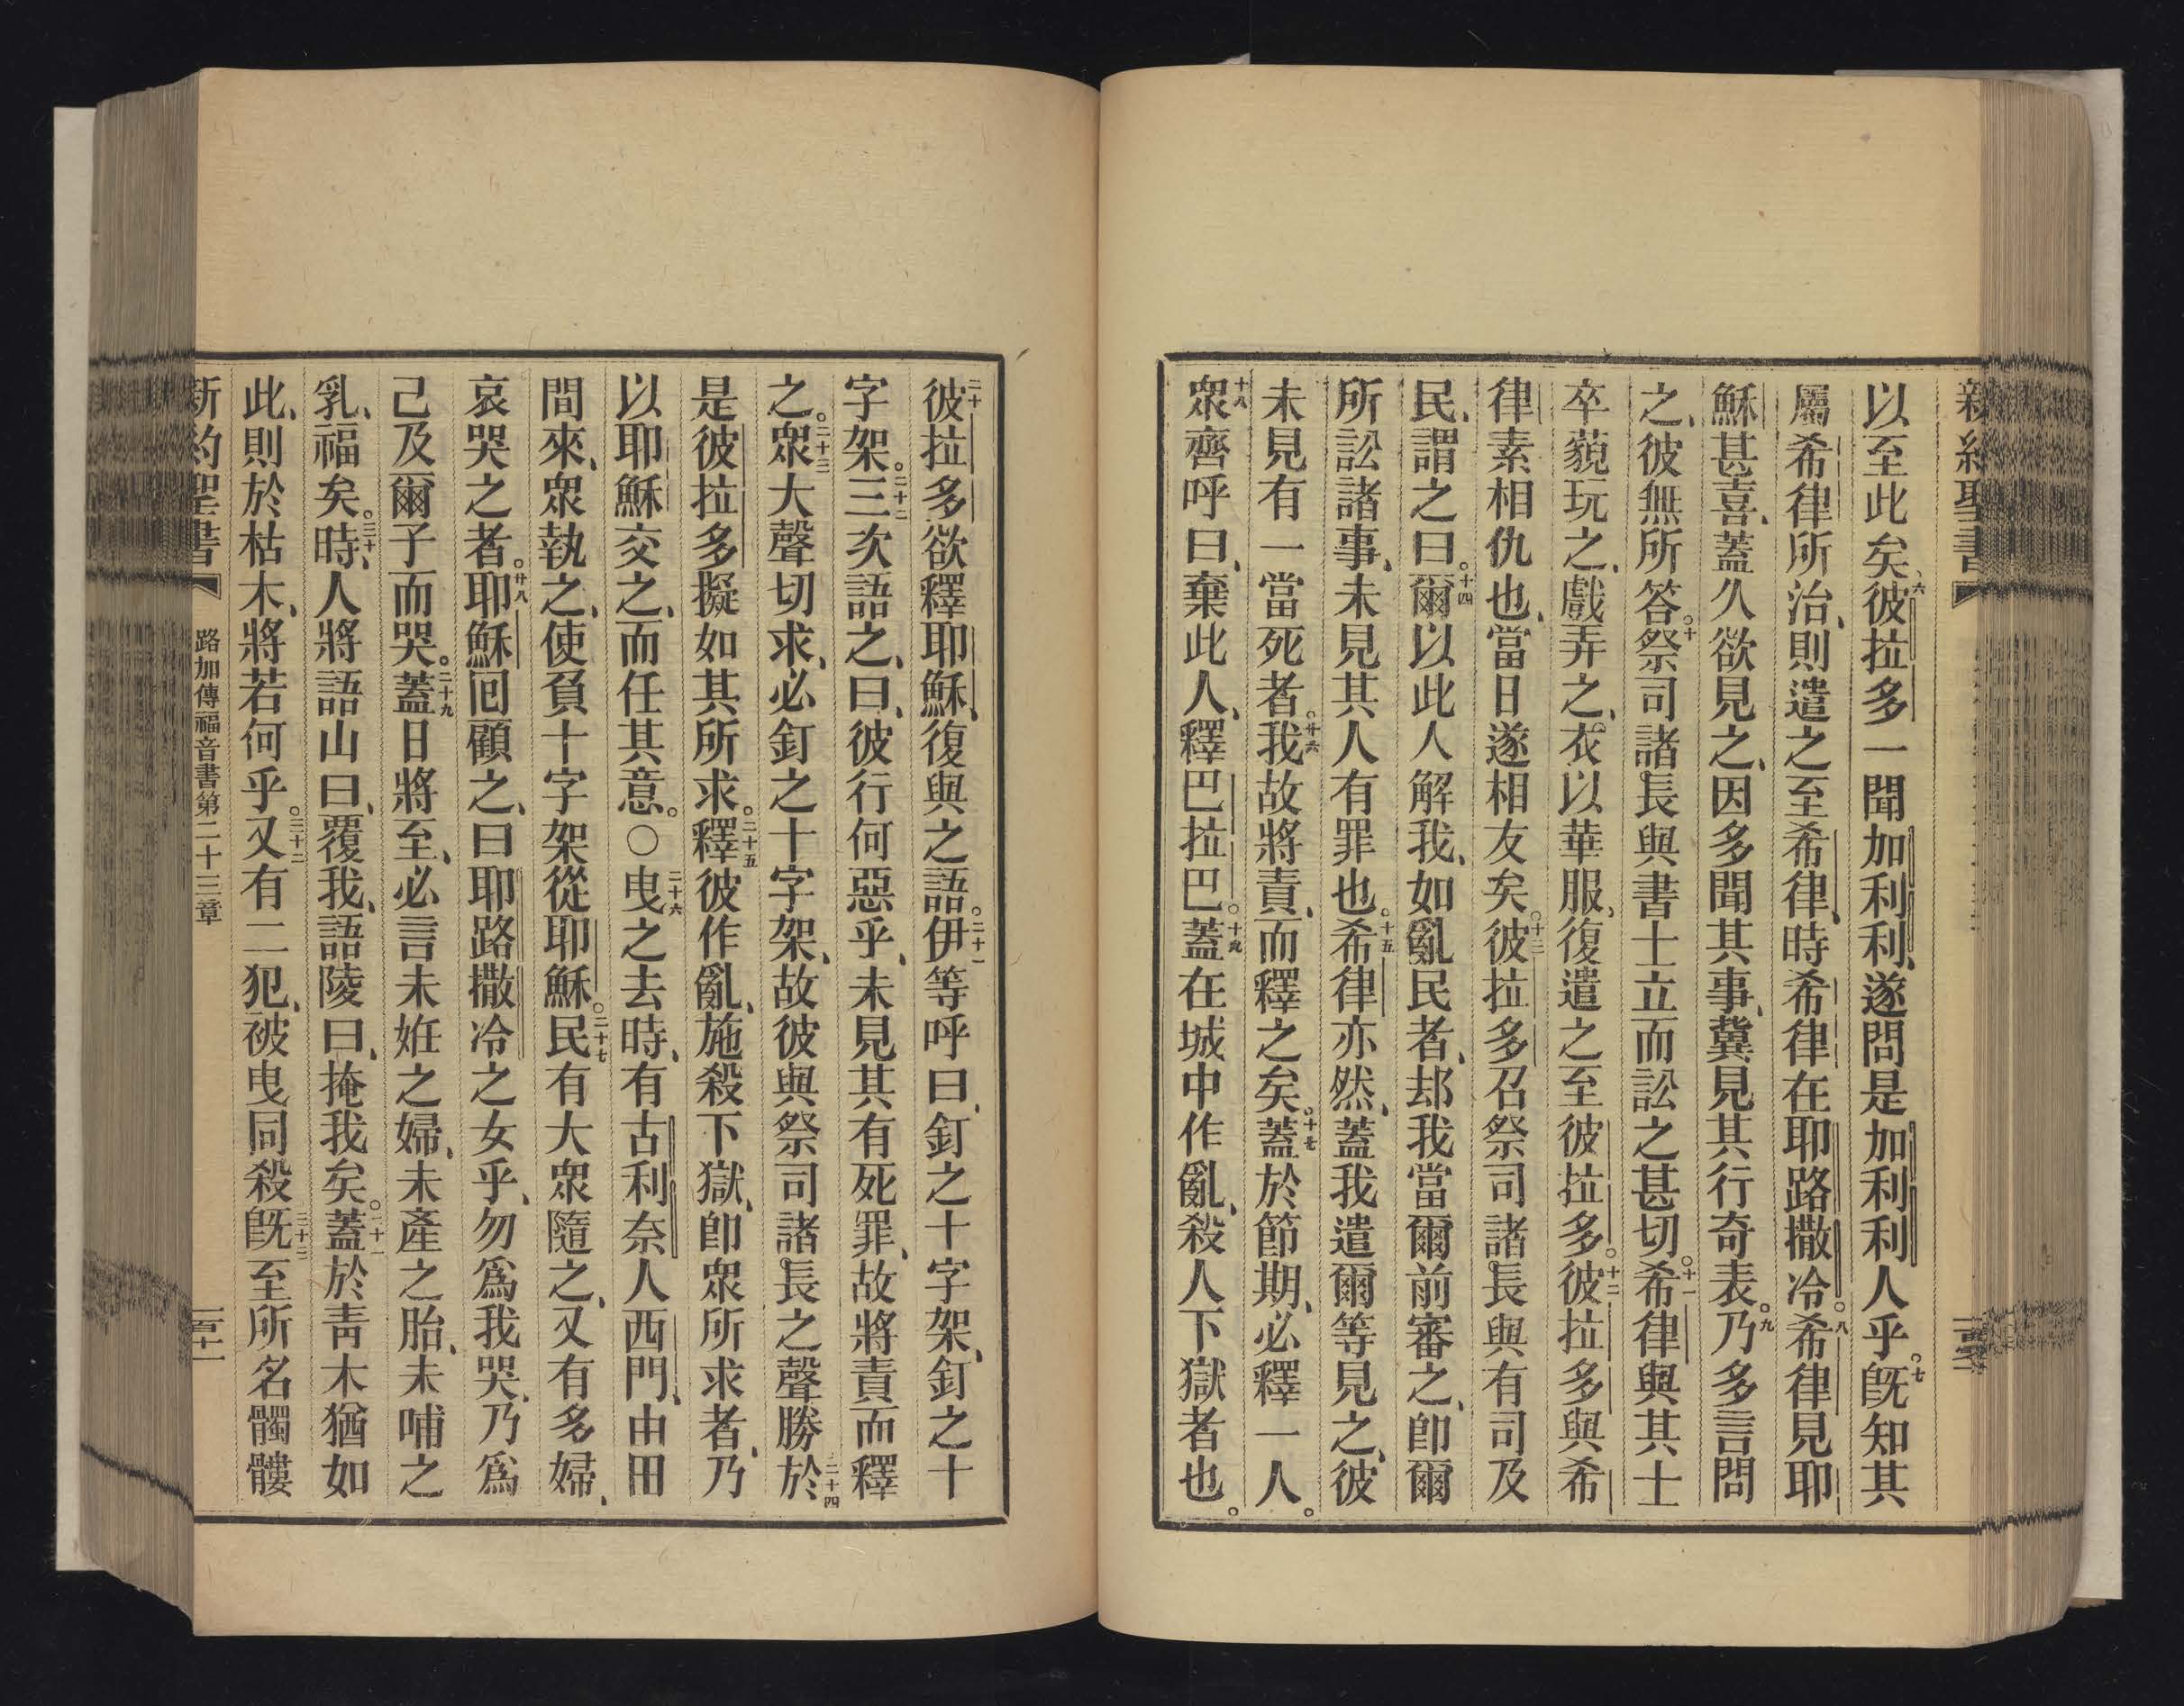 新約聖書
以至此矣、六彼拉多一聞加利利、遂問是加利利人乎。七旣知其
屬希律所治、則遣之至希律、時希律在耶路撒冷。八希律見耶
穌甚喜、蓋久欲見之、因多聞其事、冀見其行奇表。九乃多言問
之、彼無所答。十祭司諸長與書士立而訟之甚切。十一希律與其士
卒藐玩之、戲弄之、衣以華服、復遣之至彼拉多。十二彼拉多與希
律素相仇也、當日遂相友矣。十三彼拉多召祭司諸長與有司及
民、謂之曰。十四爾以此人解我、如亂民者、却我當爾前審之、卽爾
所訟諸事、未見其人有罪也。十五希律亦然、蓋我遣爾等見之、彼
未見有一當死者。十六我故將責、而釋之矣。十七蓋於節期、必釋一人。
十八衆齊呼曰、棄此人、釋巴拉巴。十九蓋在城中作亂、殺人下獄者也。
二十彼拉多欲釋耶穌、復與之語。二十一伊等呼曰、釘之十字架、釘之十
字架。二十二三次語之、曰、彼行何惡乎、未見其有死罪、故將責而釋
之。二十三衆大聲切求、必釘之十字架、故彼與祭司諸長之聲勝於二十四
是彼拉多擬如其所求。二十五釋彼作亂、施殺下獄、卽衆所求者、乃
以耶穌交之、而任其意。〇二十六曳之去時、有古利奈人西門、由田
間來、衆執之、使負十字架從耶穌。二十七民有大衆隨之、又有多婦、
哀哭之者。廿八耶穌囘顧之、曰耶路撒冷之女乎、勿爲我哭、乃爲
己及爾子而哭。二十九蓋日將至、必言未姙之婦、未產之胎、未哺之
乳、福矣。三十時、人將語山曰、覆我、語陵曰、掩我矣。三十一蓋於靑木猶如
此、則於枯木、將若何乎。三十二又有二犯、被曳同殺三十三旣至所名髑髏
新約聖書 路加傳福音書第二十三章 一百十一